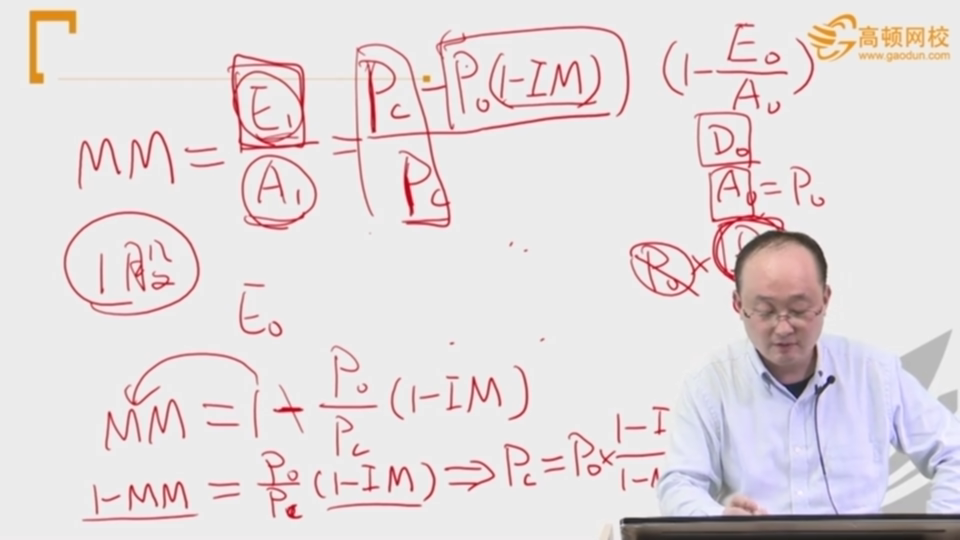 高顿网校
www.gaodun.com
MM = E₁/A₁ = (Pc - P₀(1-IM))/Pc
(1 - E₀/A₀)
D₀
A₀ = P₀
1股
P₀ ×
E₀
MM = 1 - P₀/Pc (1-IM)
1-MM = P₀/Pc (1-IM) ⇒ Pc = P₀ × 1-I
1-M